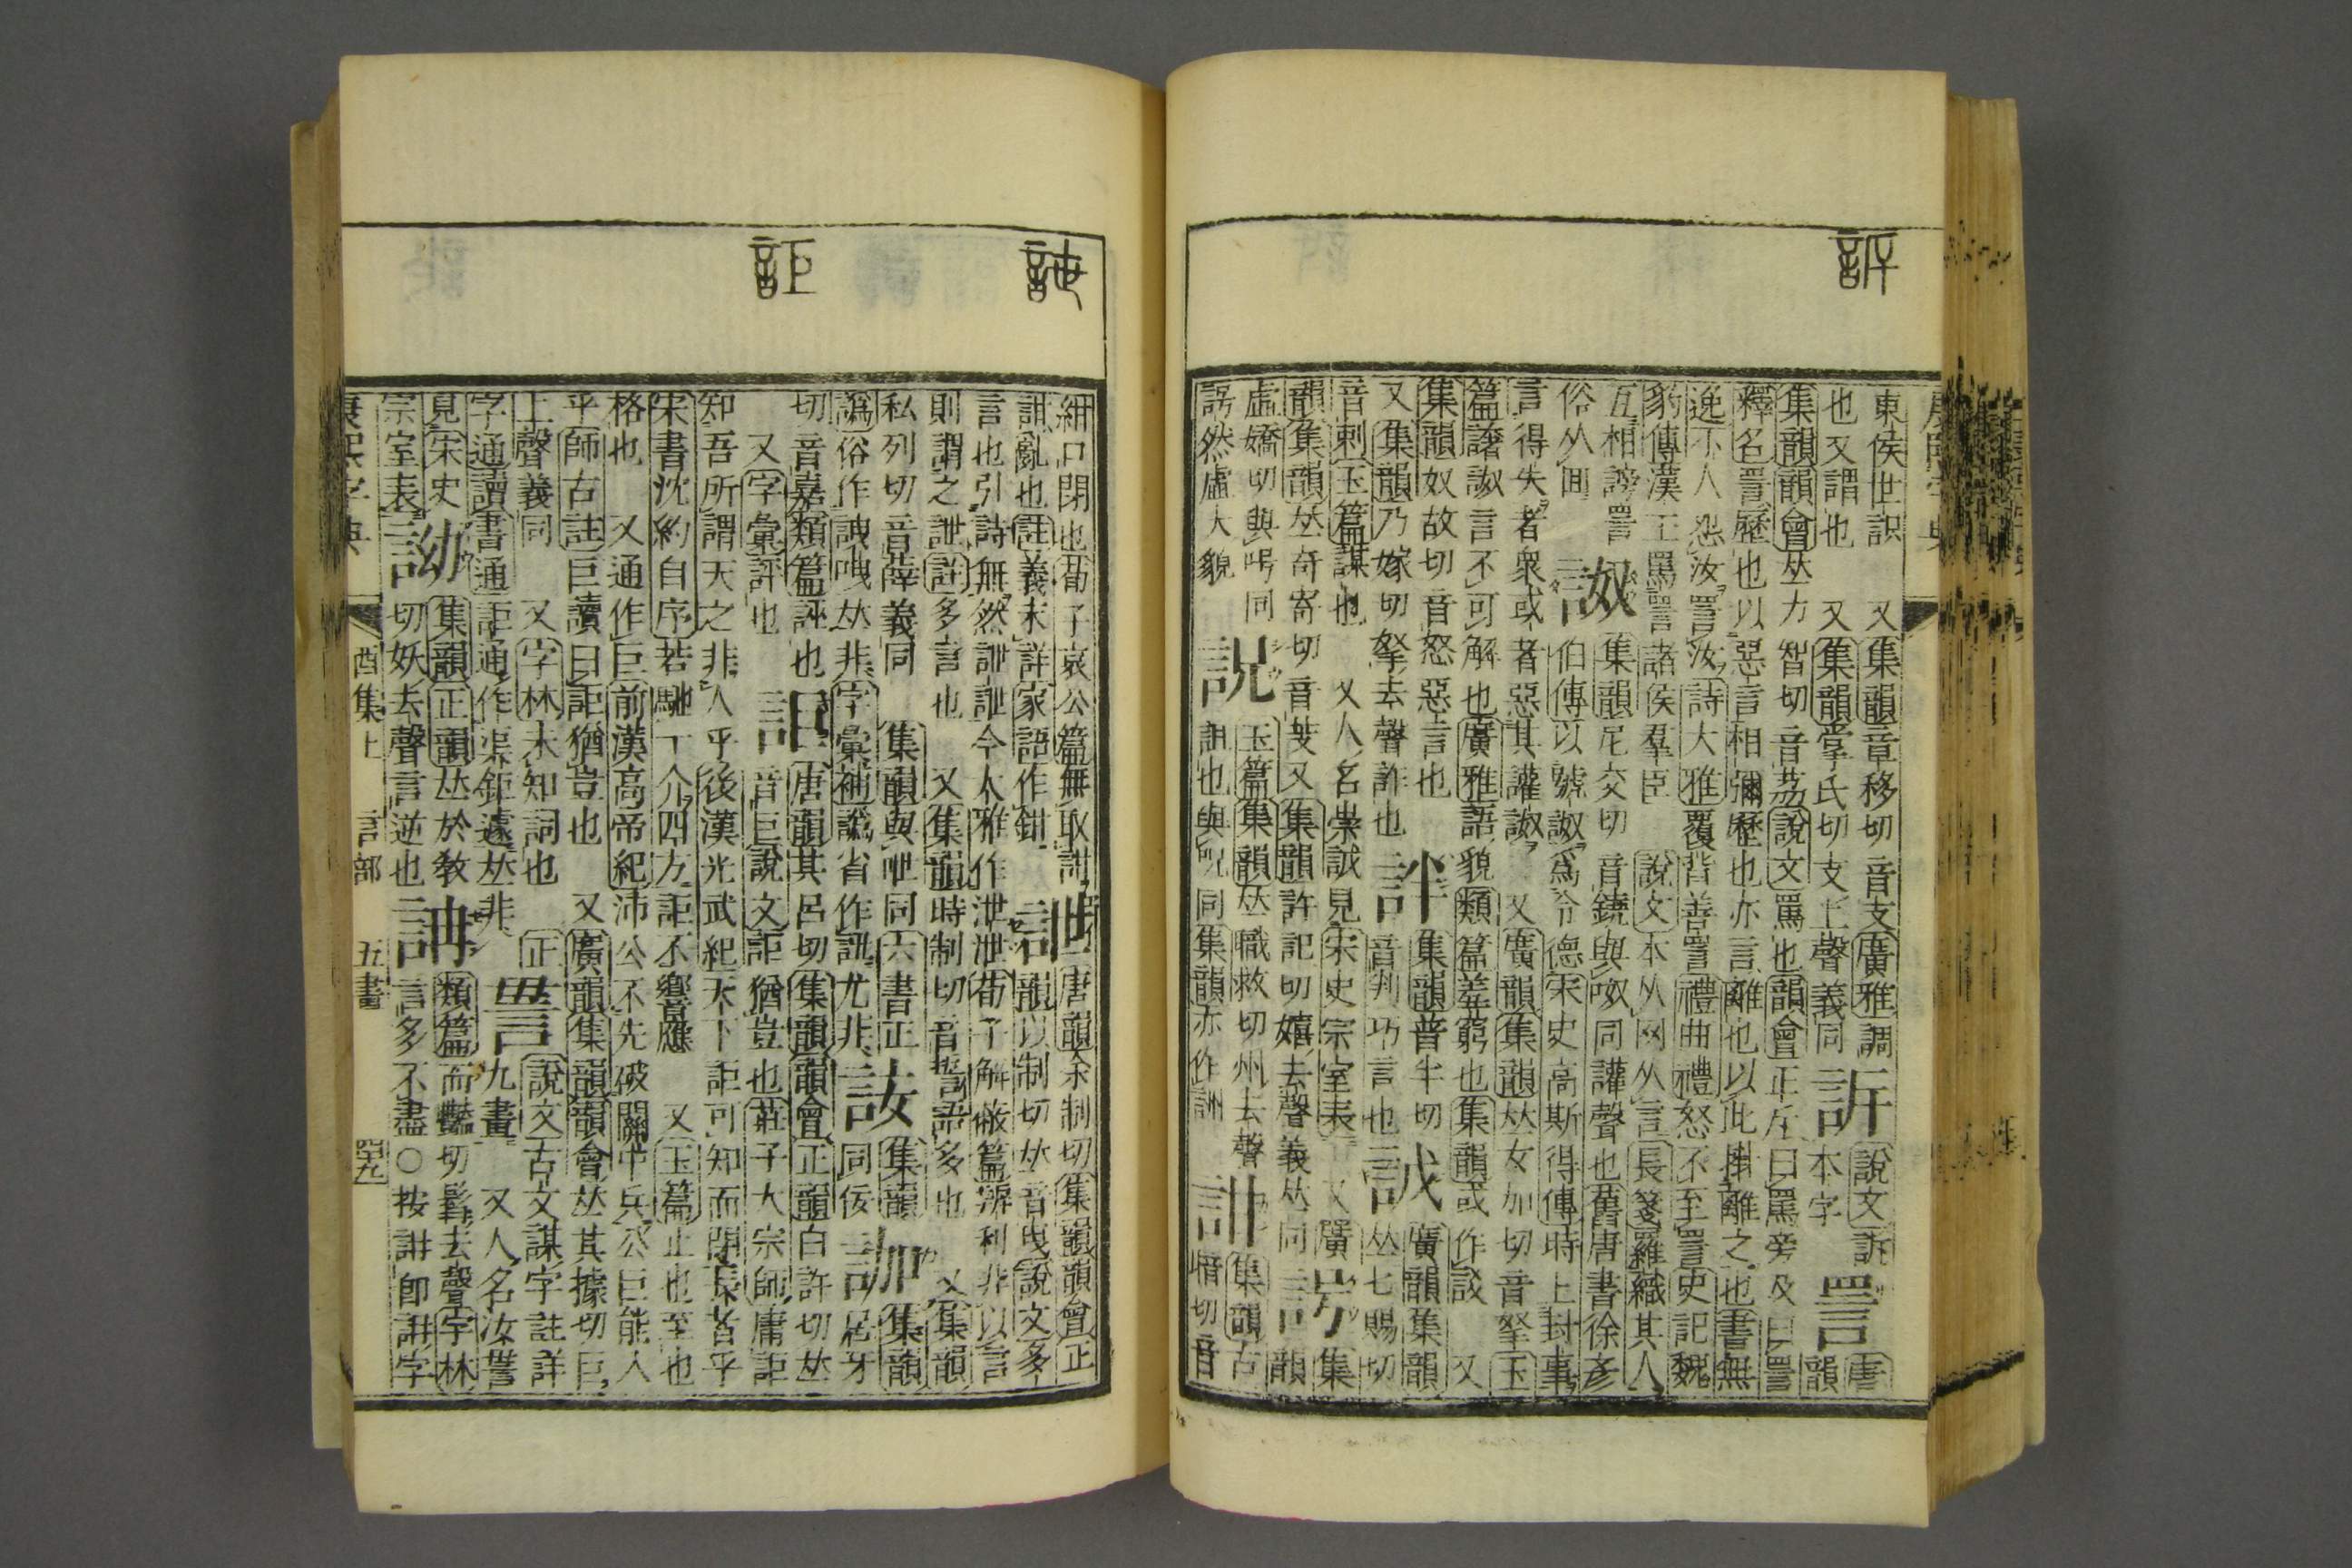 訴
東侯世訳　又集韻章移切音支廣雅調訴說文訴詈唐
也又謂也　又集韻掌氏切支上聲義同本字韻
集韻韻會𠀤力智切音荔說文罵也韻會正斥曰罵旁及曰詈
釋名詈歷也以惡言相彌歷也亦言離也以此掛離之也書無
逸小人怨汝詈汝詩大雅覆背善詈禮曲禮怒不至詈史記魏
豹傳漢王罵詈諸侯羣臣　說文本从网从言長箋羅織其人
互相謗詈詉集韻尼交切音鐃與呶同讙聲也舊唐書徐彥
俗从　伯傳以號詉爲令德宋史高斯得傳時上封事
言得失者衆或者惡其讙詉　又廣韻集韻𠀤女加切音拏玉
篇譇詉言不可解也廣雅語貌類篇羞窮也集韻或作　又
集韻奴故切音怒惡言也詊集韻普半切　廣韻集韻
又集韻乃嫁切拏去聲詐也音判巧言也　𠀤七賜切
音刺玉篇謀也　又人名崇　見宋史宗室表　又廣　集
韻集韻𠀤奇寄切音芰又集韻許記切嬉去聲義𠀤同　韻
虛嬌切與呺同　玉篇集韻𠀤職救切州去聲詌集韻古
謣然虛大貌　詛也與呪同集韻亦作詶　暗切音
詍
詎
紺口閉也荀子哀公篇無取詌詍唐韻余制切集韻韻會正
詌亂也註義未詳家語作鉗　韻以制切𠀤音曳說文多
言也引詩無然詍詍今大雅作泄泄荀子解蔽篇辨利非以言
則謂之詍註多言也　又集韻時制切音誓語多也　又集韻
私列切音薛義同　集韻與呭同六書正　集韻　集韻
譌俗作　𠀤非字彙補譌省作　尤非　同佞　居牙
切音嘉類篇誣也詎唐韻其呂切集韻韻會正韻臼許切𠀤
又字彙評也　音巨說文詎猶豈也莊子大宗師庸詎
知吾所謂天之非人乎後漢光武紀天下詎可知而閉長者乎
宋書沈約自序若馳一介四方詎不響應　又玉篇止也至也
格也　又通作巨前漢高帝紀沛公不先破關中兵公巨能入
乎師古註巨讀曰詎猶豈也　又廣韻集韻韻會𠀤其據切巨
上聲義同　又字林未知詞也　正　說文古文謀字註詳
字通讀書通詎通作渠鉅遽𠀤非　九畫　又人名汝
見宋史詏集韻正韻𠀤於教　類篇而豔切髥去聲字林
宗室表　切妖去聲言逆也　言多不盡○按　卽　字
康熙字典　酉集上　言部　五畫　四九